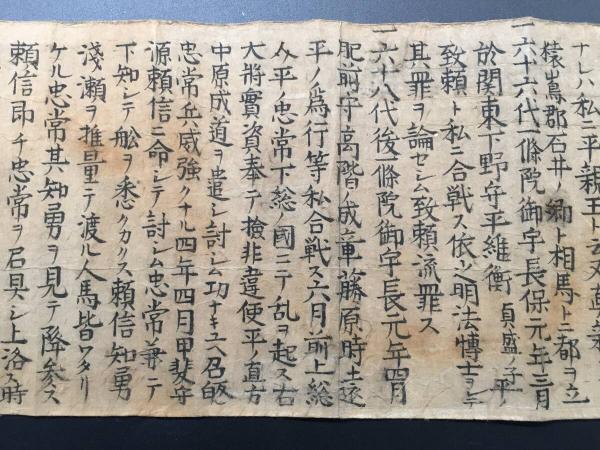 ナレハ私ニ平親王ト云
猿嶌郡石井ノ郷ト相馬トニ都ヲ立
一六十六代一條院御宇長保元年三月
於関東下野守平維衡貞盛ノ子平ノ
致頼ト私ニ合戦ス依之明法博士ヲシテ
其罪ヲ論セシム致頼流罪ス
一六十八代後一條院御宇長元年四月
肥前守高階ノ成章藤原時士遠
平ノ為行等私合戦ス六月ノ前上総
介平ノ忠常下総ノ國ニテ乱ヲ起ス右
大将實資奉テ檢非違使平ノ直方
中原成道ヲ遣シ討シム功ナキユヘ召皈
忠常兵威強クナル四年四月甲斐守
源頼信ニ命シテ討シム忠常兼テ
下知シテ舩ヲ悉クカクス頼信知勇
淺瀬ヲ推量テ渡ル人馬皆ワタリ
ケル忠常其知勇ヲ見テ降参ス
頼信即チ忠常ヲ召具シ上洛ス時